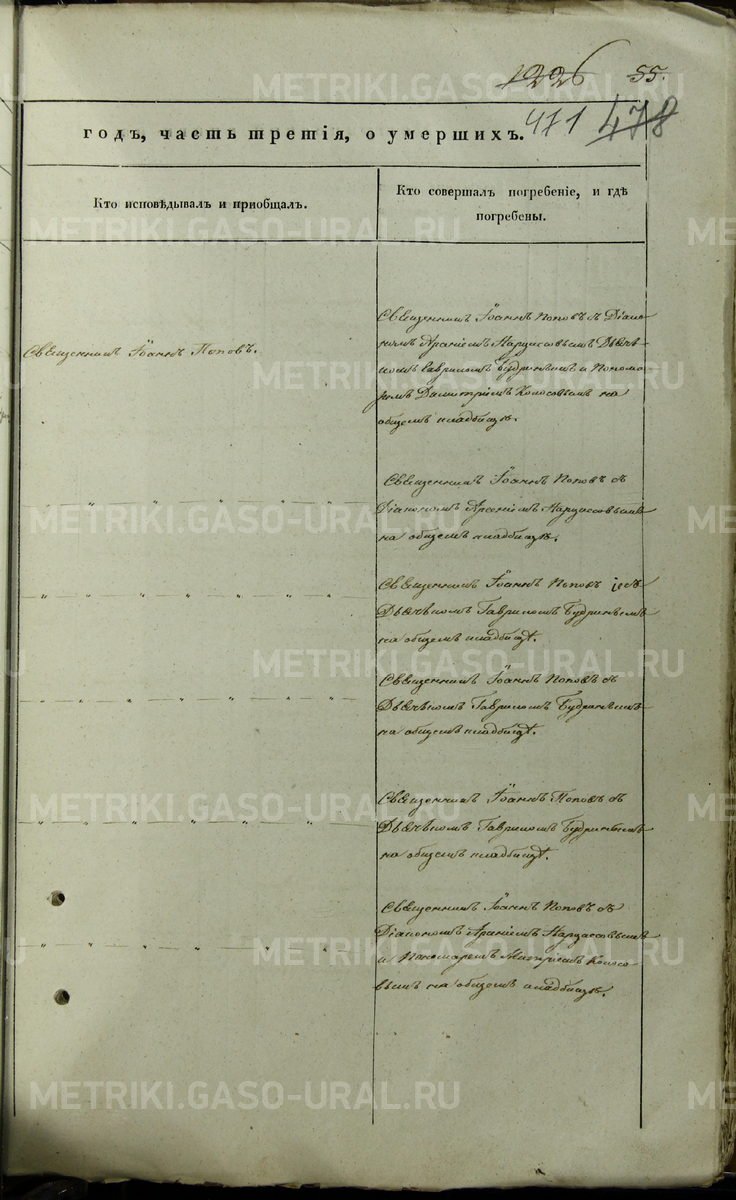 1226 55.
471 478
годъ, часть третія, о умершихъ.
Кто исповѣдывалъ и пріобщалъ.
Кто совершалъ погребеніе, и гдѣ
погребены.
Священникъ Іоаннъ Поповъ.
Священникъ Іоаннъ Поповъ съ Діако-
номъ Нарциссовымъ Дьячь-
комъ Гавриломъ и Понома-
ремъ Димитріемъ Колосовымъ на
общемъ кладбищѣ.
Священникъ Іоаннъ Поповъ съ
Діакономъ Арсеніемъ Нарциссовымъ
на общемъ кладбищѣ.
Священникъ Іоаннъ Поповъ съ
Дьячькомъ Гавриломъ
на общемъ кладбищѣ.
Священникъ Іоаннъ Поповъ съ
Дьячькомъ Гавриломъ
на общемъ кладбищѣ.
Священникъ Іоаннъ Поповъ съ
Дьячькомъ Гавриломъ
на общемъ кладбищѣ.
Священникъ Іоаннъ Поповъ съ
Діакономъ Нарциссовымъ
и Пономаремъ Колосо-
вымъ на общемъ кладбищѣ.
METRIKI.GASO-URAL.RU